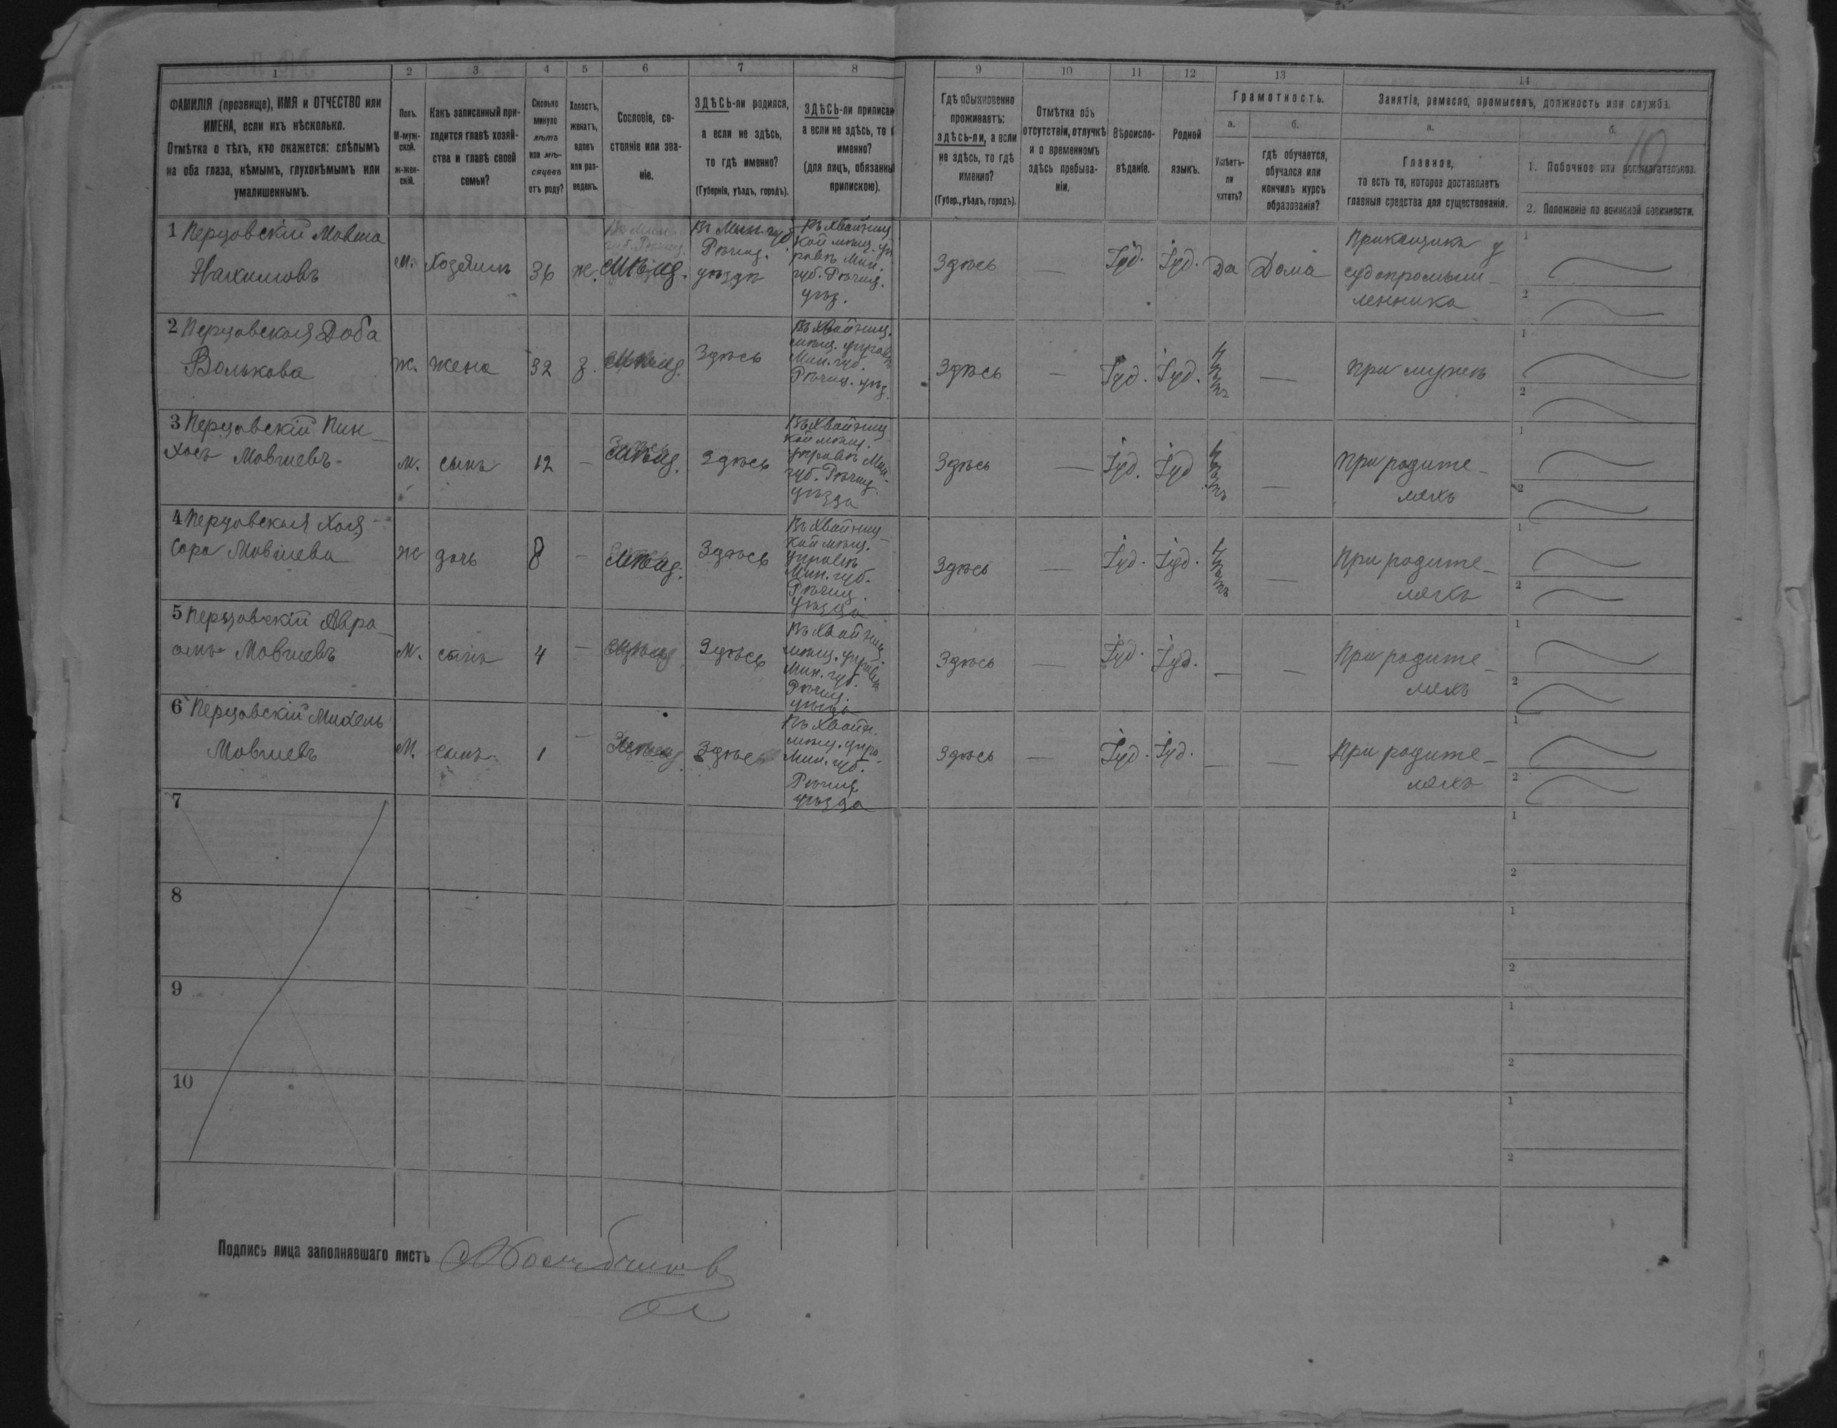 1 2 3 4 5 6 7 8 9 10 11 12 13 14
ФАМИЛІЯ (прозвище), ИМЯ и ОТЧЕСТВО или
ИМЕНА, если ихъ нѣсколько.
Отмѣтка о тѣхъ, кто окажется: слѣпымъ
на оба глаза, нѣмымъ, глухонѣмымъ или
умалишеннымъ.
Полъ.
М-муж-
ской.
ж-жен-
скій.
Какъ записанный при-
ходится главѣ хозяй-
ства и главѣ своей
семьи?
Сколько
минуло
лѣтъ
или мѣ-
сяцевъ
отъ роду?
Холостъ,
женатъ,
вдовъ
или раз-
веденъ.
Сословіе, со-
стояніе или зва-
ніе.
ЗДѢСЬ-ли родился,
а если не здѣсь,
то гдѣ именно?
(Губернія, уѣздъ, городъ).
ЗДѢСЬ-ли приписан
а если не здѣсь, то
именно?
(для лицъ, обязанны
припискою).
Гдѣ обыкновенно
проживаетъ:
здѣсь-ли, а если
не здѣсь, то гдѣ
именно?
(Губер., уѣздъ, городъ).
Отмѣтка объ
отсутствіи, отлучкѣ
и о временномъ
здѣсь пребыва-
ніи.
Вѣроиспо-
вѣданіе.
Родной
языкъ.
Грамотность.
а.
Умѣетъ-
ли
читать?
б.
гдѣ обучается,
обучался или
кончилъ курсъ
образованія?
Занятіе, ремесло, промыселъ, должность или служба.
а.
Главное,
то есть то, которое доставляетъ
главныя средства для существованія.
б.
1. Побочное или вспомогательное.
2. Положеніе по воинской повинности.
10
1 Перцовскій Мовша
Нахимовъ
м. Хозяинъ 36 ж. Мѣщ.
Въ Мин. губ.
Рѣчиц.
уѣздѣ
Въ Хвойниц
кой мѣщ. уп
равѣ Мин.
губ. Рѣчиц.
уѣз.
Здѣсь — Іуд. Іуд. Да Дома
Прикащикъ у
судопромыш-
ленника
1
2
2 Перцовская Доба
Волькова
ж. жена 32 з. Мѣщ. Здѣсь
Въ Хвойниц.
мѣщ. управѣ
Мин. губ.
Рѣчиц. уѣз.
Здѣсь — Іуд. Іуд. Нѣтъ —
При мужѣ
1
2
3 Перцовскій Пин-
хосъ Мовшевъ
м. сынъ 12 — Мѣщ. Здѣсь
Въ Хвойниц
кой мѣщ.
управѣ Мин.
губ. Рѣчиц.
уѣзда
Здѣсь — Іуд. Іуд Нѣтъ —
При родите-
ляхъ
1
2
4 Перцовская Хая
Сора Мовшева
ж дочь 8 — Мѣщ. Здѣсь
Въ Хвойниц-
кой мѣщ.
управѣ
Мин. губ.
Рѣчиц.
уѣзда
Здѣсь — Іуд. Іуд. Нѣтъ —
При родите-
ляхъ
1
2
5 Перцовскій Абра-
амъ Мовшевъ
м. сынъ 4 — Мѣщ Здѣсь
Въ Хвойниц.
мѣщ. управѣ
Мин. губ.
Рѣчиц.
уѣзда
Здѣсь — Іуд. Іуд. — —
При родите-
ляхъ
1
2
6 Перцовскій Михель
Мовшевъ
м. сынъ 1 — Мѣщ. Здѣсь
Въ Хвойн.
мѣщ. упра-
Мин. губ.
Рѣчиц.
уѣзда
Здѣсь — Іуд. Іуд. — —
При родите-
ляхъ
1
2
7
1
2
8
1
2
9
1
2
10
1
2
Подпись лица заполнявшаго листъ